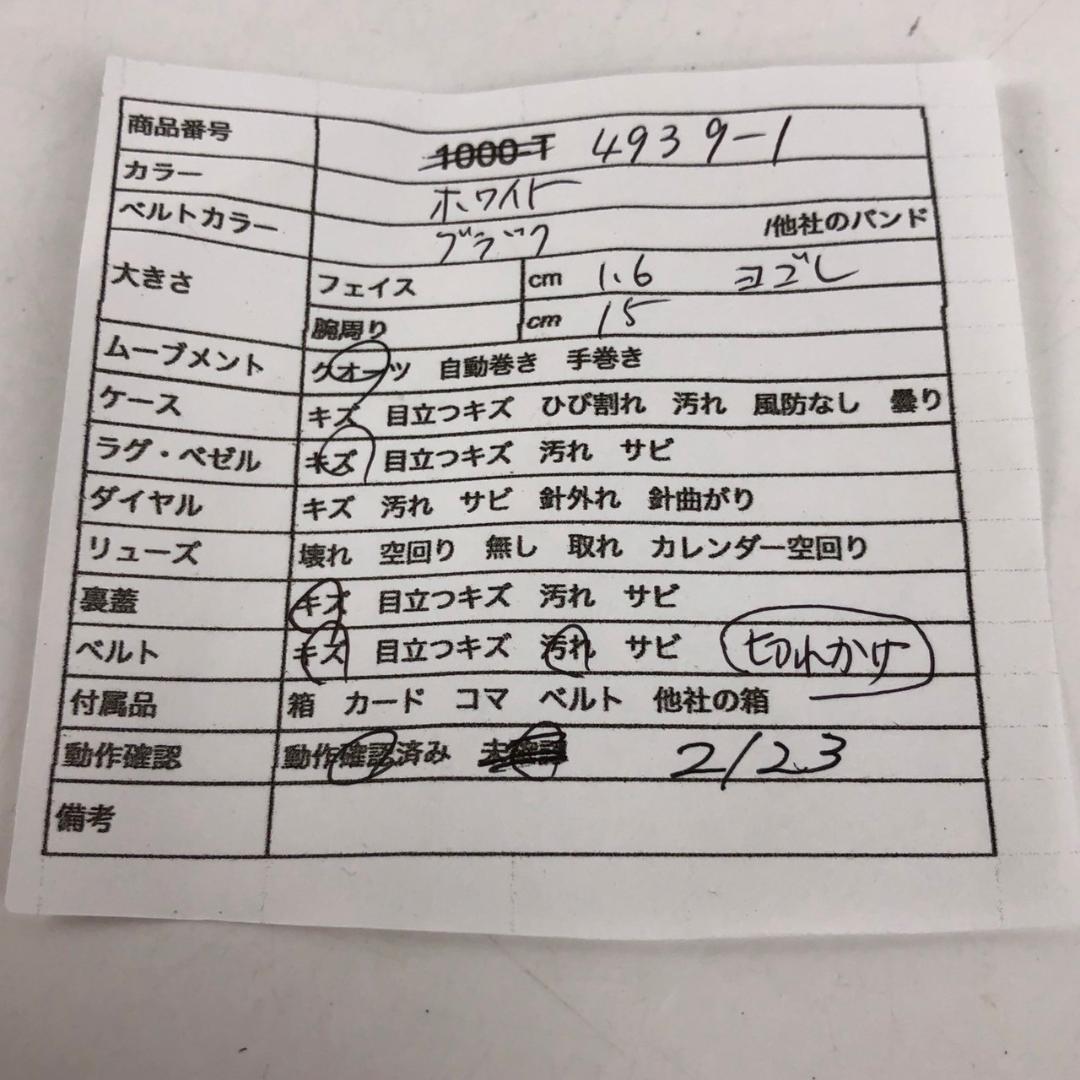 商品番号 1000-T 4939-1
カラー ホワイト
ベルトカラー ブラック /他社のバンド
大きさ フェイス cm 1.6 ヨゴレ
腕周り cm 15
ムーブメント クオーツ 自動巻き 手巻き
ケース キズ 目立つキズ ひび割れ 汚れ 風防なし 曇り
ラグ・ベゼル キズ 目立つキズ 汚れ サビ
ダイヤル キズ 汚れ サビ 針外れ 針曲がり
リューズ 壊れ 空回り 無し 取れ カレンダー空回り
裏蓋 キズ 目立つキズ 汚れ サビ
ベルト キズ 目立つキズ 汚れ サビ 切れかけ
付属品 箱 カード コマ ベルト 他社の箱
動作確認 動作確認済み 未確認 2/23
備考